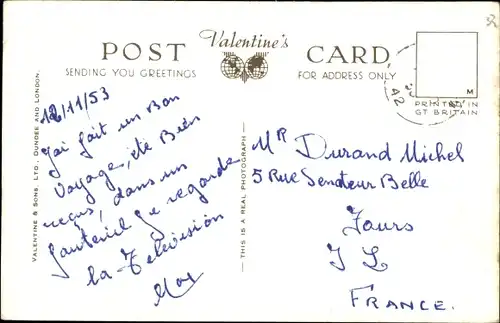 POST Valentine's CARD
SENDING YOU GREETINGS
FOR ADDRESS ONLY
M
PRINTED IN
GT BRITAIN
42
VALENTINE & SONS, LTD. DUNDEE AND LONDON.
THIS IS A REAL PHOTOGRAPH
12/11/53
J'ai fait un Bon
Voyage, été Bien
reçus, dans un
fauteuil je regarde
la Télévision
Mr Durand Michel
5 Rue Senateur Belle
Tours
I L
FRANCE.